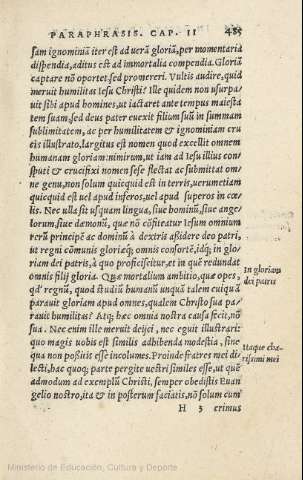 PARAPHRASIS. CAP. II 485
sam ignominiā iter est ad uerā gloriā, per momentaria
dispendia, aditus est ad immortalia compendia. Gloriā
captare nō oportet, sed promereri. Vultis audire, quid
meruit humilitas Iesu Christi? Ille quidem non usurpa
uit sibi apud homines, ut iactaret ante tempus maiesta
tem suam, sed deus pater euexit filium suū in summam
sublimitatem, ac per humilitatem & ignominiam cru
cis illustrato, largitus est nomen quod excellit omnem
humanam gloriam: mirum, ut iam ad Iesu illius con=
sputi & crucifixi nomen sese flectat ac submittat om=
ne genu, non solum quicquid est in terris, uerumetiam
quicquid est uel apud inferos, uel apud superos in cœ=
lis. Nec ulla sit usquam lingua, siue hominū, siue ange=
lorum, siue dæmonū, quæ nō cōfiteatur Iesum omnium
rerū principē ac dominū à dextris assidere deo patri,
ut regni cōmunis gloriæq; omnis consortē, idq; in glo=
riam dei patris, à quo proficiscitur, et in quē redundat
omnis filij gloria. Quæ mortalium ambitio, quæ opes,
qd' regnū, quod studiū humanū unquā talem cuiquā
parauit gloriam apud omnes, qualem Christo sua pa=
rauit humilitas? Atq; hæc omnia nostra causa fecit, nō
sua. Nec enim ille meruit deijci, nec eguit illustrari:
quo magis uobis est similis adhibenda modestia, sine
qua non potestis esse incolumes. Proinde fratres mei di=
lecti, hac quoq; parte pergite uestri similes esse, ut quē
admodum ad exemplū Christi, semper obedistis Euan
gelio nostro, ita & in posterum faciatis, nō solum cum
H 3 erimus
In gloriam
dei patris
Itaque cha=
rissimi mei
Ministerio de Educación, Cultura y Deporte